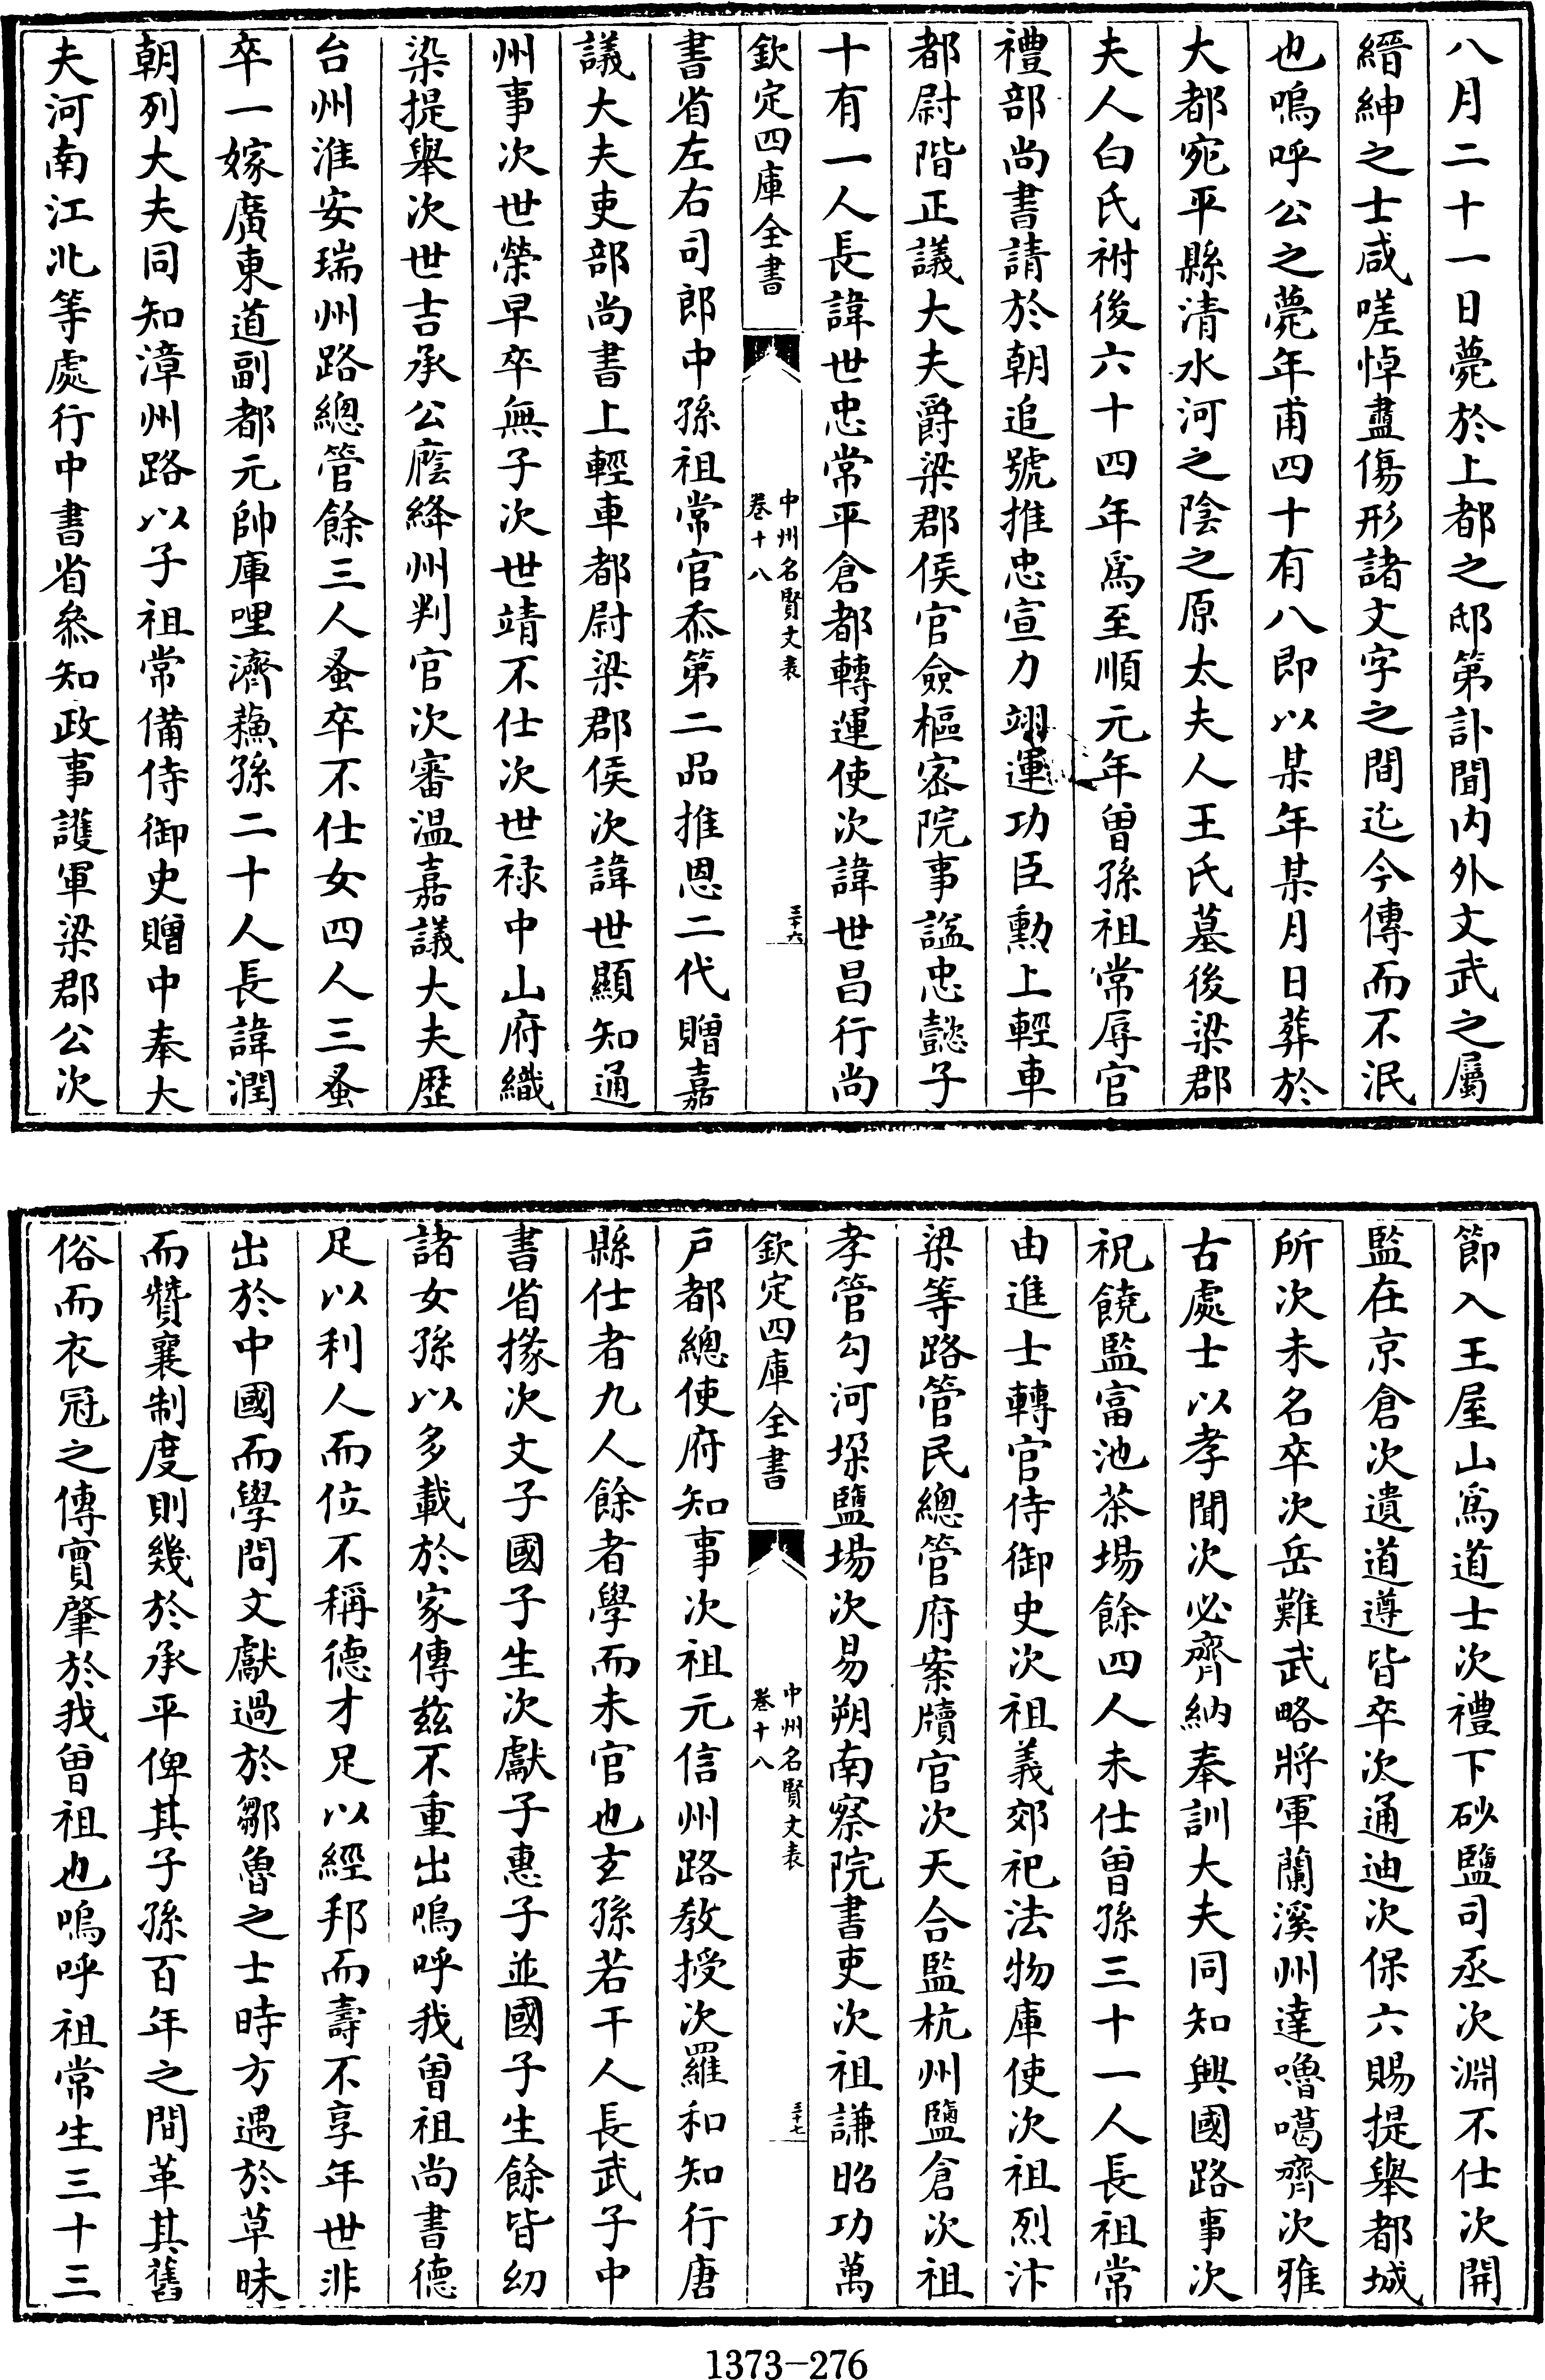 八月二十一日薨於上都之邸第訃聞内外文武之屬
縉紳之士咸嗟悼盡傷形諸文字之間迄今傳而不泯
也嗚呼公之薨年甫四十有八即以某年某月日葬於
大都宛平縣清水河之陰之原太夫人王氏墓後梁郡
夫人白氏祔後六十四年爲至順元年曾孫祖常辱官
禮部尚書請於朝追號推忠宣力翊運功臣勲上輕車
都尉階正議大夫爵梁郡侯官僉樞密院事諡忠懿子
十有一人長諱世忠常平倉都轉運使次諱世昌行尚
欽定四庫全書
中州名賢文表
卷十八
三十六
書省左右司郎中孫祖常官忝第二品推恩二代贈嘉
議大夫吏部尚書上輕車都尉梁郡侯次諱世顯知通
州事次世榮早卒無子次世靖不仕次世禄中山府織
染提舉次世吉承公廕絳州判官次審温嘉議大夫歴
台州淮安瑞州路總管餘三人蚤卒不仕女四人三蚤
卒一嫁廣東道副都元帥庫哩濟蘓孫二十人長諱潤
朝列大夫同知漳州路以子祖常備侍御史贈中奉大
夫河南江北等處行中書省叅知政事護軍梁郡公次
節入王屋山爲道士次禮下砂鹽司丞次淵不仕次開
監在京倉次遺道遵皆卒次通迪次保六賜提舉都城
所次未名卒次岳難武略將軍蘭溪州達嚕噶齊次雅
古處士以孝聞次必齊納奉訓大夫同知興國路事次
祝饒監富池茶場餘四人未仕曾孫三十一人長祖常
由進士轉官侍御史次祖義郊祀法物庫使次祖烈汴
梁等路管民總管府案牘官次天合監杭州鹽倉次祖
孝管勾河垜鹽場次易朔南察院書吏次祖謙昭功萬
欽定四庫全書
中州名賢文表
卷十八
三十七
戸都總使府知事次祖元信州路教授次羅和知行唐
縣仕者九人餘者學而未官也玄孫若干人長武子中
書省掾次文子國子生次獻子惠子並國子生餘皆幼
諸女孫以多載於家傳兹不重出嗚呼我曾祖尚書德
足以利人而位不稱德才足以經邦而壽不享年世非
出於中國而學問文獻過於鄒魯之士時方遇於草昧
而贊襄制度則幾於承平俾其子孫百年之間革其舊
俗而衣冠之傳實肇於我曾祖也嗚呼祖常生三十三
1373-276